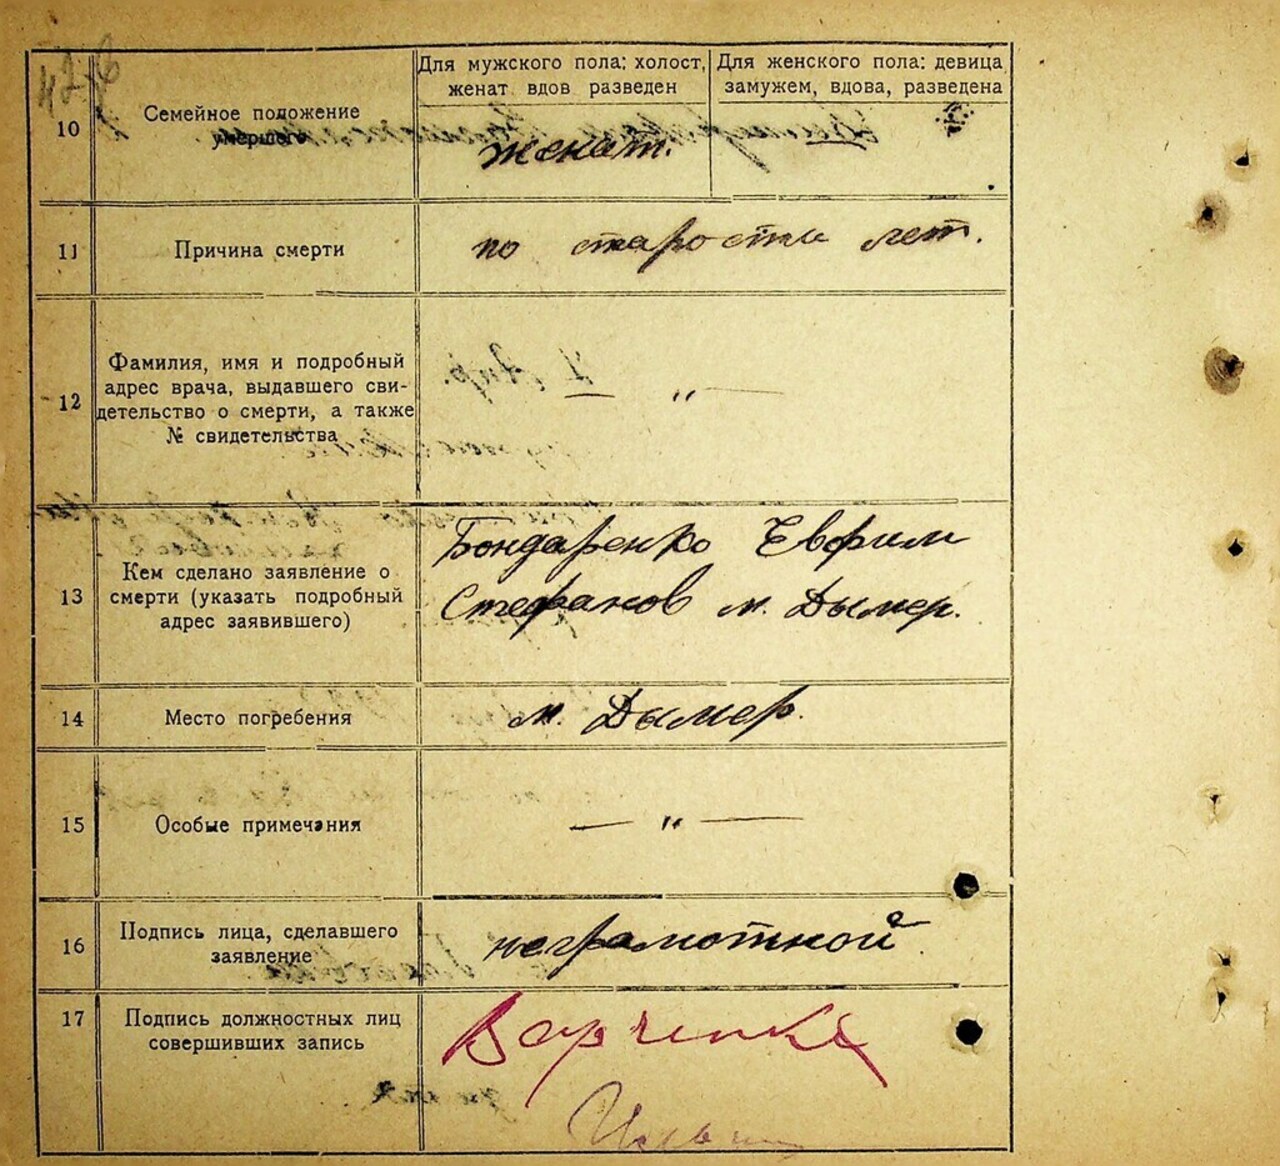 Для мужского пола: холост, женат вдов разведен
Для женского пола: девица замужем, вдова, разведена
10
Семейное положение
умершего
женат.
11
Причина смерти
по старости лет.
12
Фамилия, имя и подробный
адрес врача, выдавшего сви-
детельство о смерти, а также
№ свидетельства
— „ —
13
Кем сделано заявление о
смерти (указать подробный
адрес заявившего)
Бондаренко Евфим
Стефанов м. Дымер.
14
Место погребения
м. Дымер.
15
Особые примечания
— „ —
16
Подпись лица, сделавшего
заявление
неграмотной
17
Подпись должностных лиц
совершивших запись